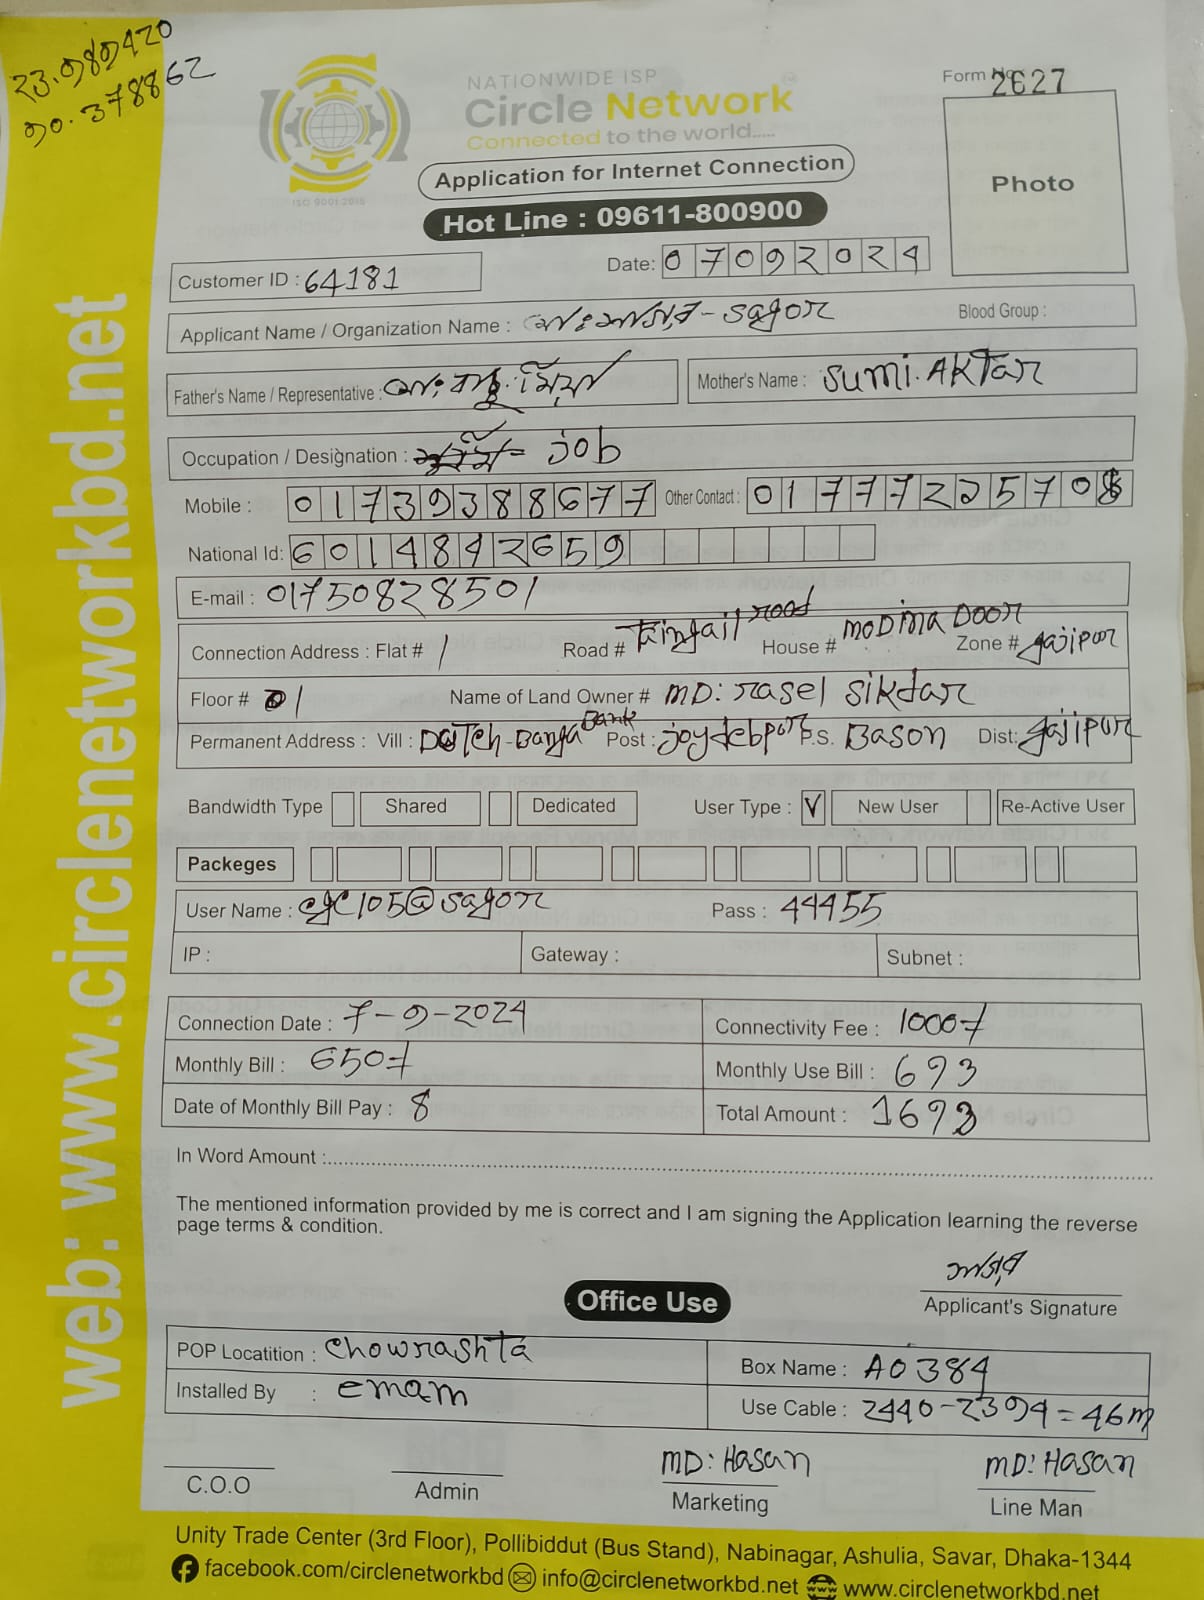 23.989420
90.378862
NATIONWIDE ISP
Circle Network
Connected to the world.....
ISO 9001:2015
Form No 2627
Photo
Application for Internet Connection
Hot Line : 09611-800900
Customer ID : 64181
Date: 07092024
Applicant Name / Organization Name : মোঃ সাগর - sagor
Blood Group :
Father's Name / Representative : মোঃ
Mother's Name : sumi. AKTar
Occupation / Designation : job
Mobile : 01739388677
Other Contact : 01777225708
National Id: 6014842659
E-mail : 01750828501
Connection Address : Flat # 1 Road # Tangail road House # moDina DOOR Zone # gajipor
Floor # 01 Name of Land Owner # MD: rasel sikdar
Permanent Address : Vill : DaTch-Banga Bank Post : joydebpor P.S. Bason Dist: gajipur
Bandwidth Type Shared Dedicated User Type : V New User Re-Active User
Packeges
User Name : cgc105@sagor Pass : 44455
IP : Gateway : Subnet :
Connection Date : 7-9-2024 Connectivity Fee : 1000/-
Monthly Bill : 650/- Monthly Use Bill : 693
Date of Monthly Bill Pay : 8 Total Amount : 1693
In Word Amount :
The mentioned information provided by me is correct and I am signing the Application learning the reverse
page terms & condition.
সাগর
Applicant's Signature
Office Use
POP Locatition : chowrashta
Box Name : A0384
Installed By : emam
Use Cable : 2440-2394=46m
MD: Hasan MD: Hasan
C.O.O Admin Marketing Line Man
Unity Trade Center (3rd Floor), Pollibiddut (Bus Stand), Nabinagar, Ashulia, Savar, Dhaka-1344
facebook.com/circlenetworkbd info@circlenetworkbd.net www.circlenetworkbd.net
web: www.circlenetworkbd.net